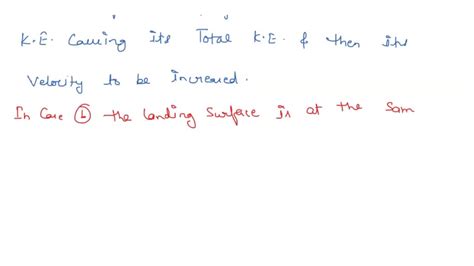 K.E. Causing Its Total K.E. & then its
Velocity to be Increased.
In Case b the landing Surface is at the Sam